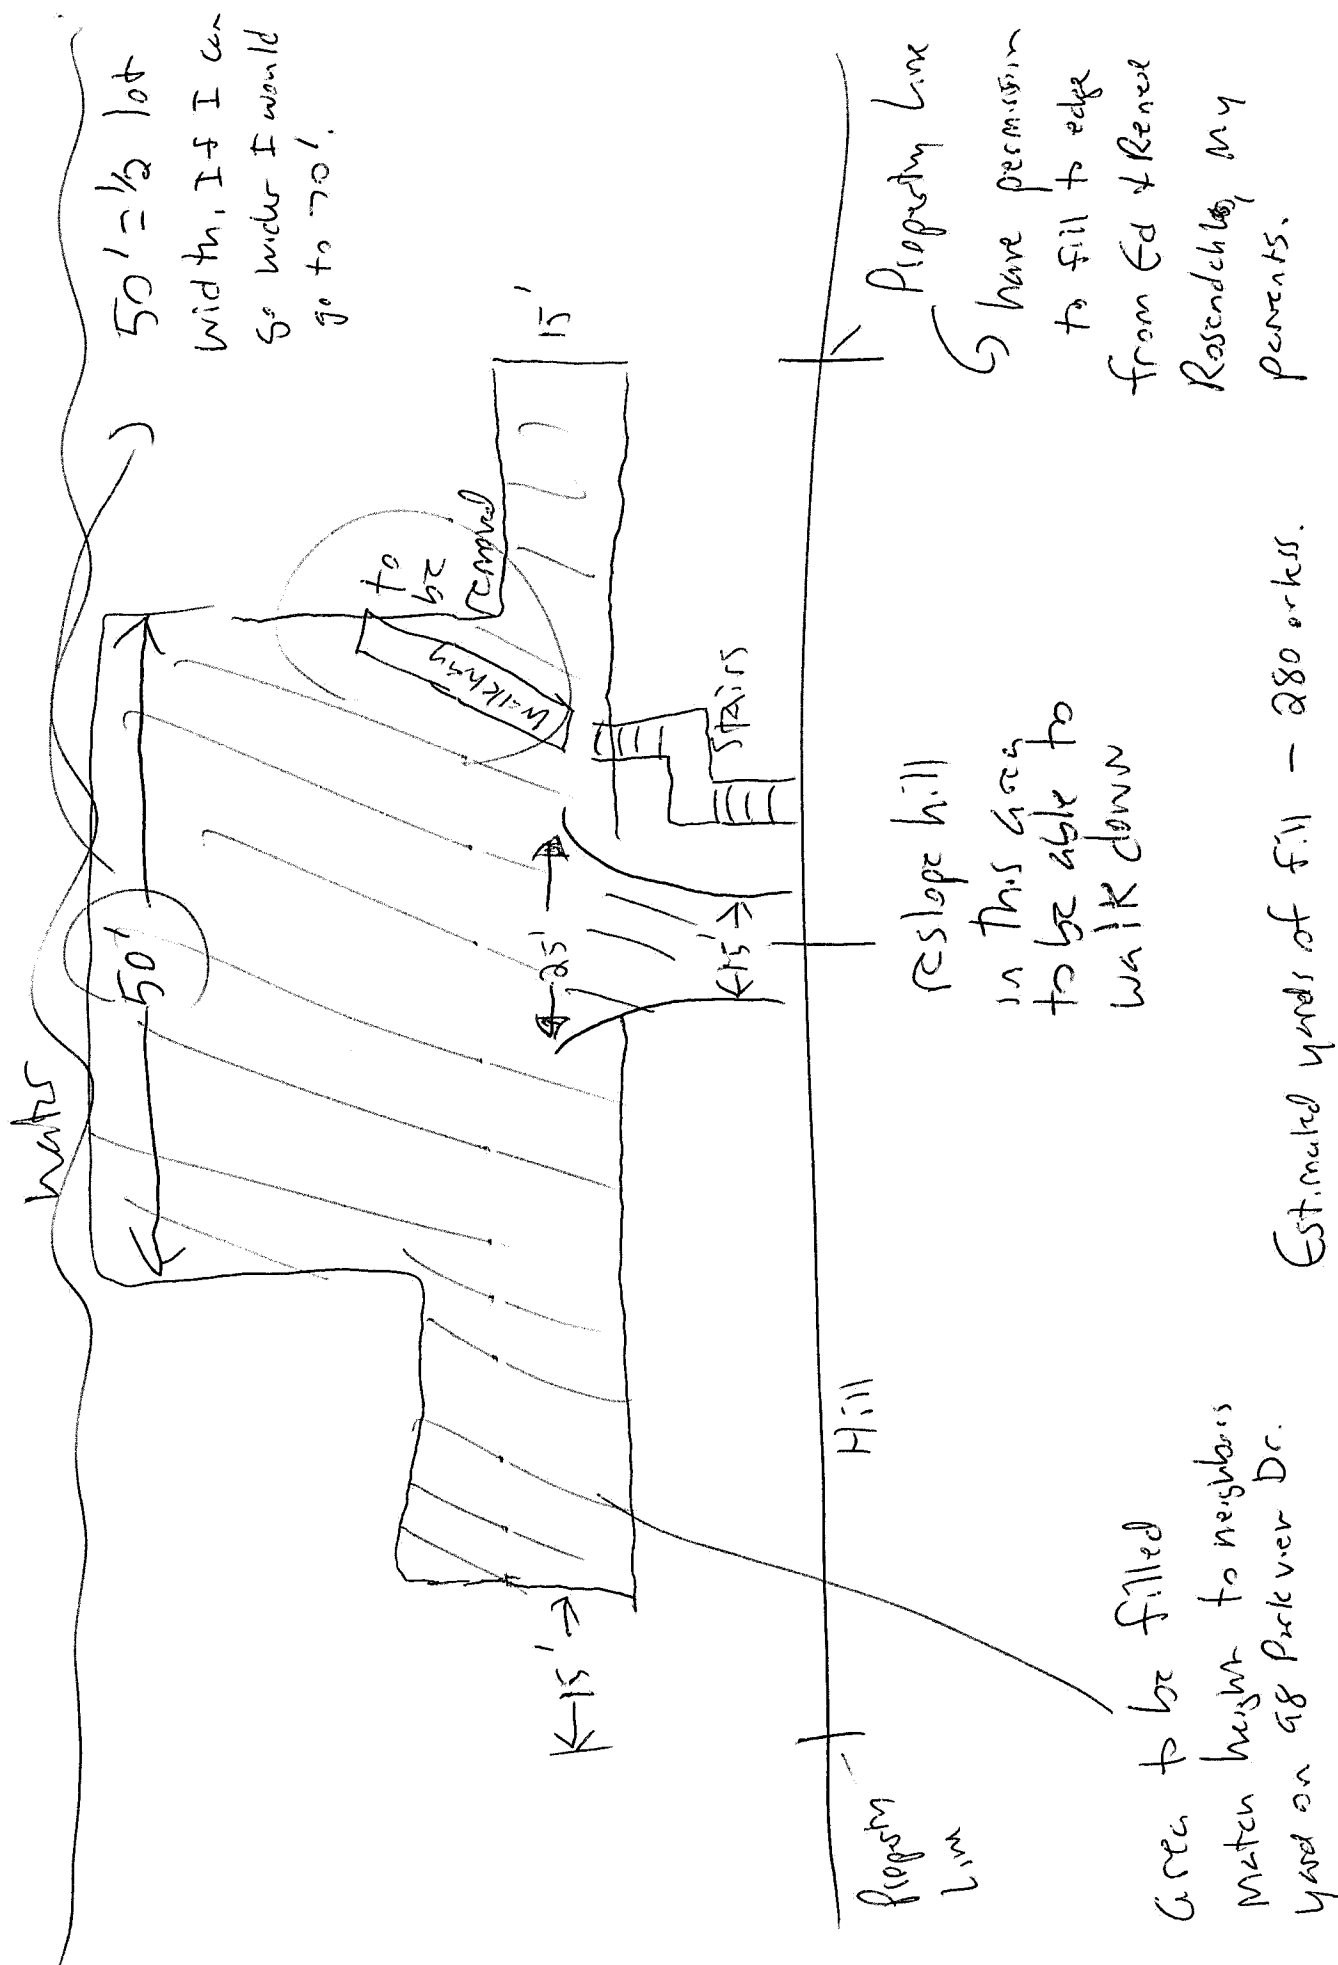 water
50' = 1/2 lot
width, If I can
go wider I would
go to 70'.
50'
to
be
removed
walkway
15'
25'
15'
Stairs
15'
Property Line
have permission
to fill to edge
from Ed & Renee
my
parents.
reslope hill
in this area
to be able to
walk down
Hill
Property
Line
area to be filled
match height to neighbors
yard on 98 Parkview Dr.
Estimated yards of fill - 280 or less.